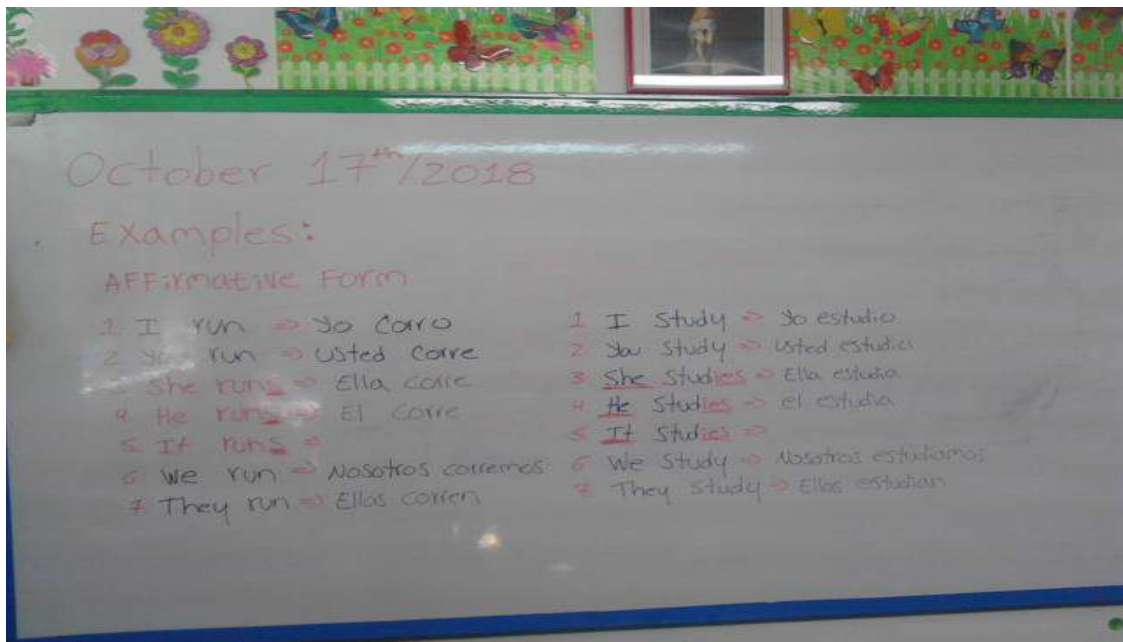 October 17th/2018
Examples:
AFFirmative Form
1 I run => Yo Corro
2 You run => Usted Corre
3 She runs => Ella corre
4 He runs => El corre
5 It runs =>
6 We run => Nosotros corremos
7 They run => Ellos corren
1 I Study => Yo estudio
2 You Study => Usted estudia
3 She Studies => Ella estudia
4 He Studies => el estudia
5 It Studies =>
6 We Study => Nosotros estudiamos
7 They Study => Ellos estudian